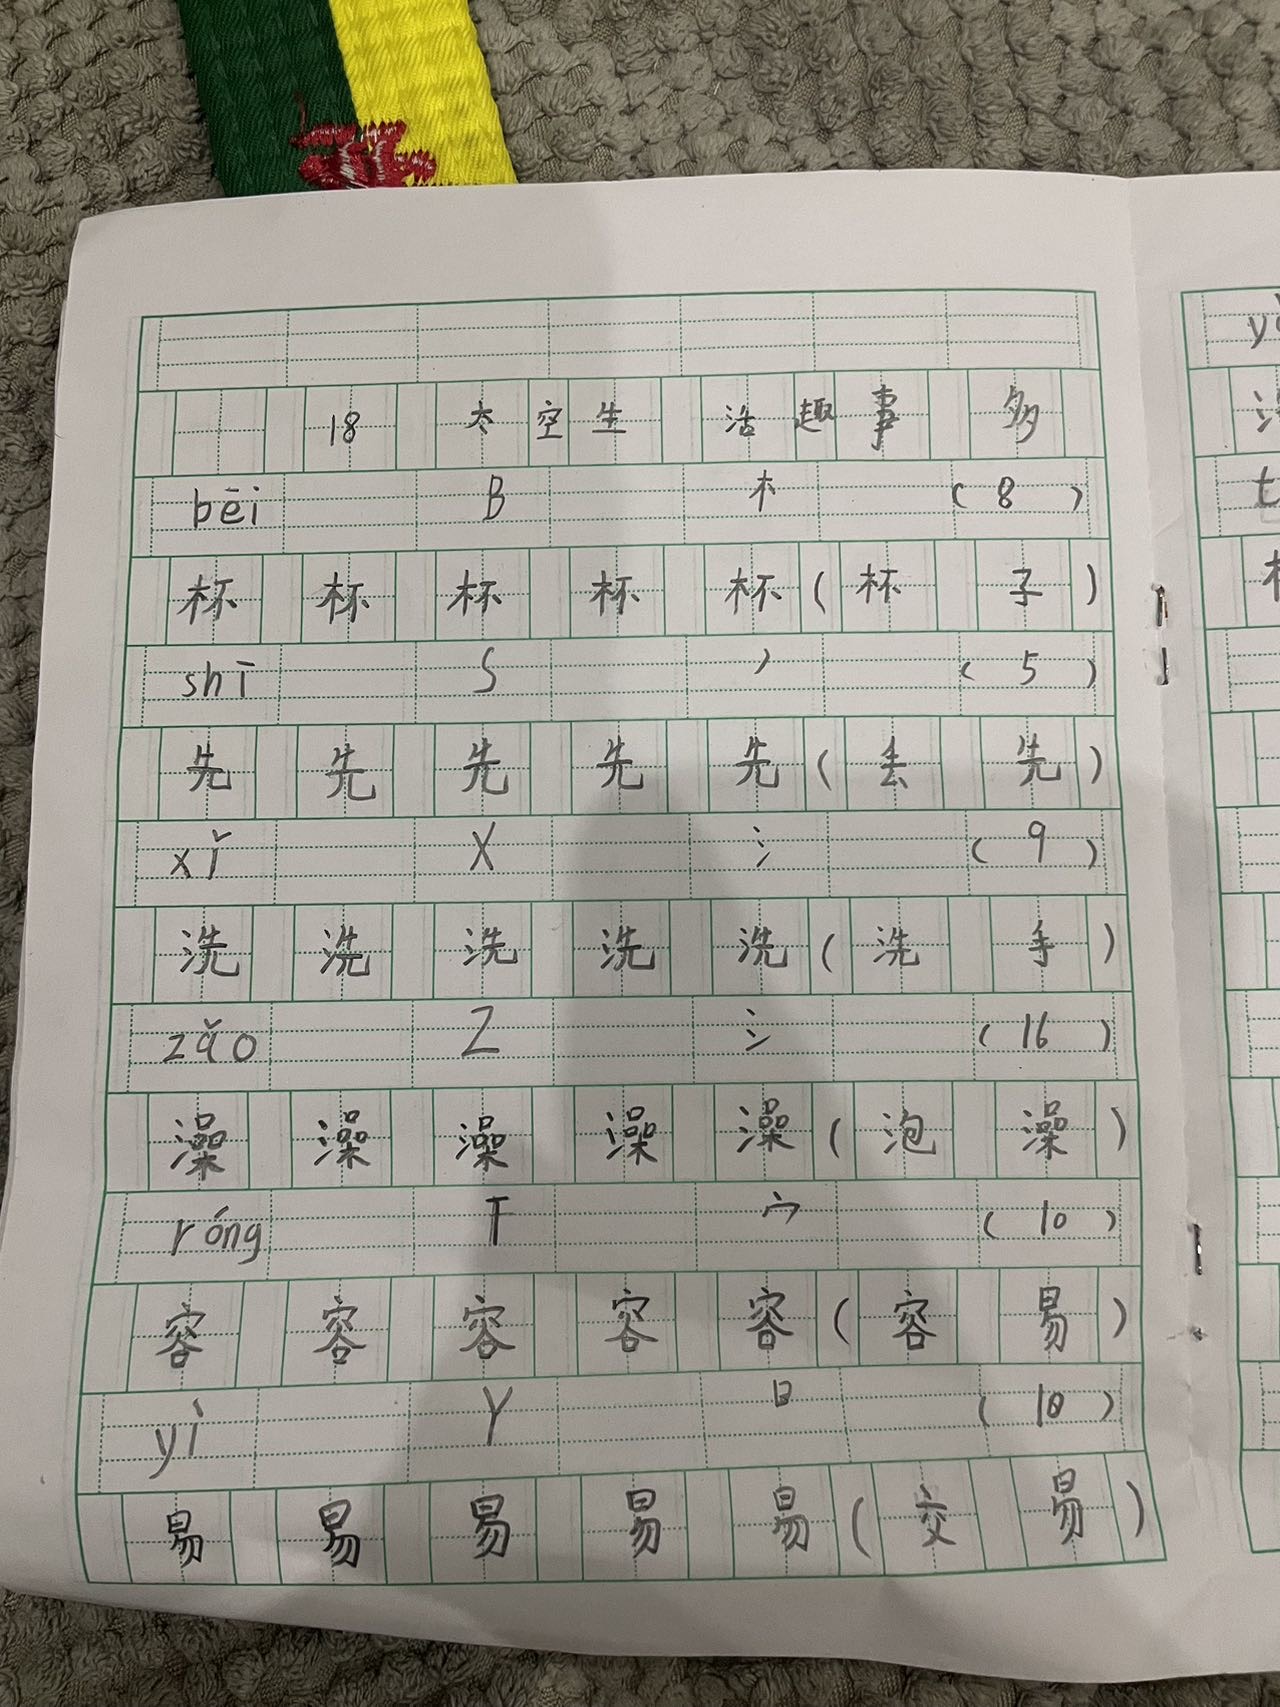 18 太空生活趣事多
bēi B 木 (8)
杯 杯 杯 杯 杯 (杯子)
shī S 丿 (5)
先 先 先 先 先 (丢先)
xǐ X 氵 (9)
洗 洗 洗 洗 洗 (洗手)
zǎo Z 氵 (16)
澡 澡 澡 澡 澡 (泡澡)
róng T 宀 (10)
容 容 容 容 容 (容易)
yì Y 日 (10)
易 易 易 易 易 (交易)